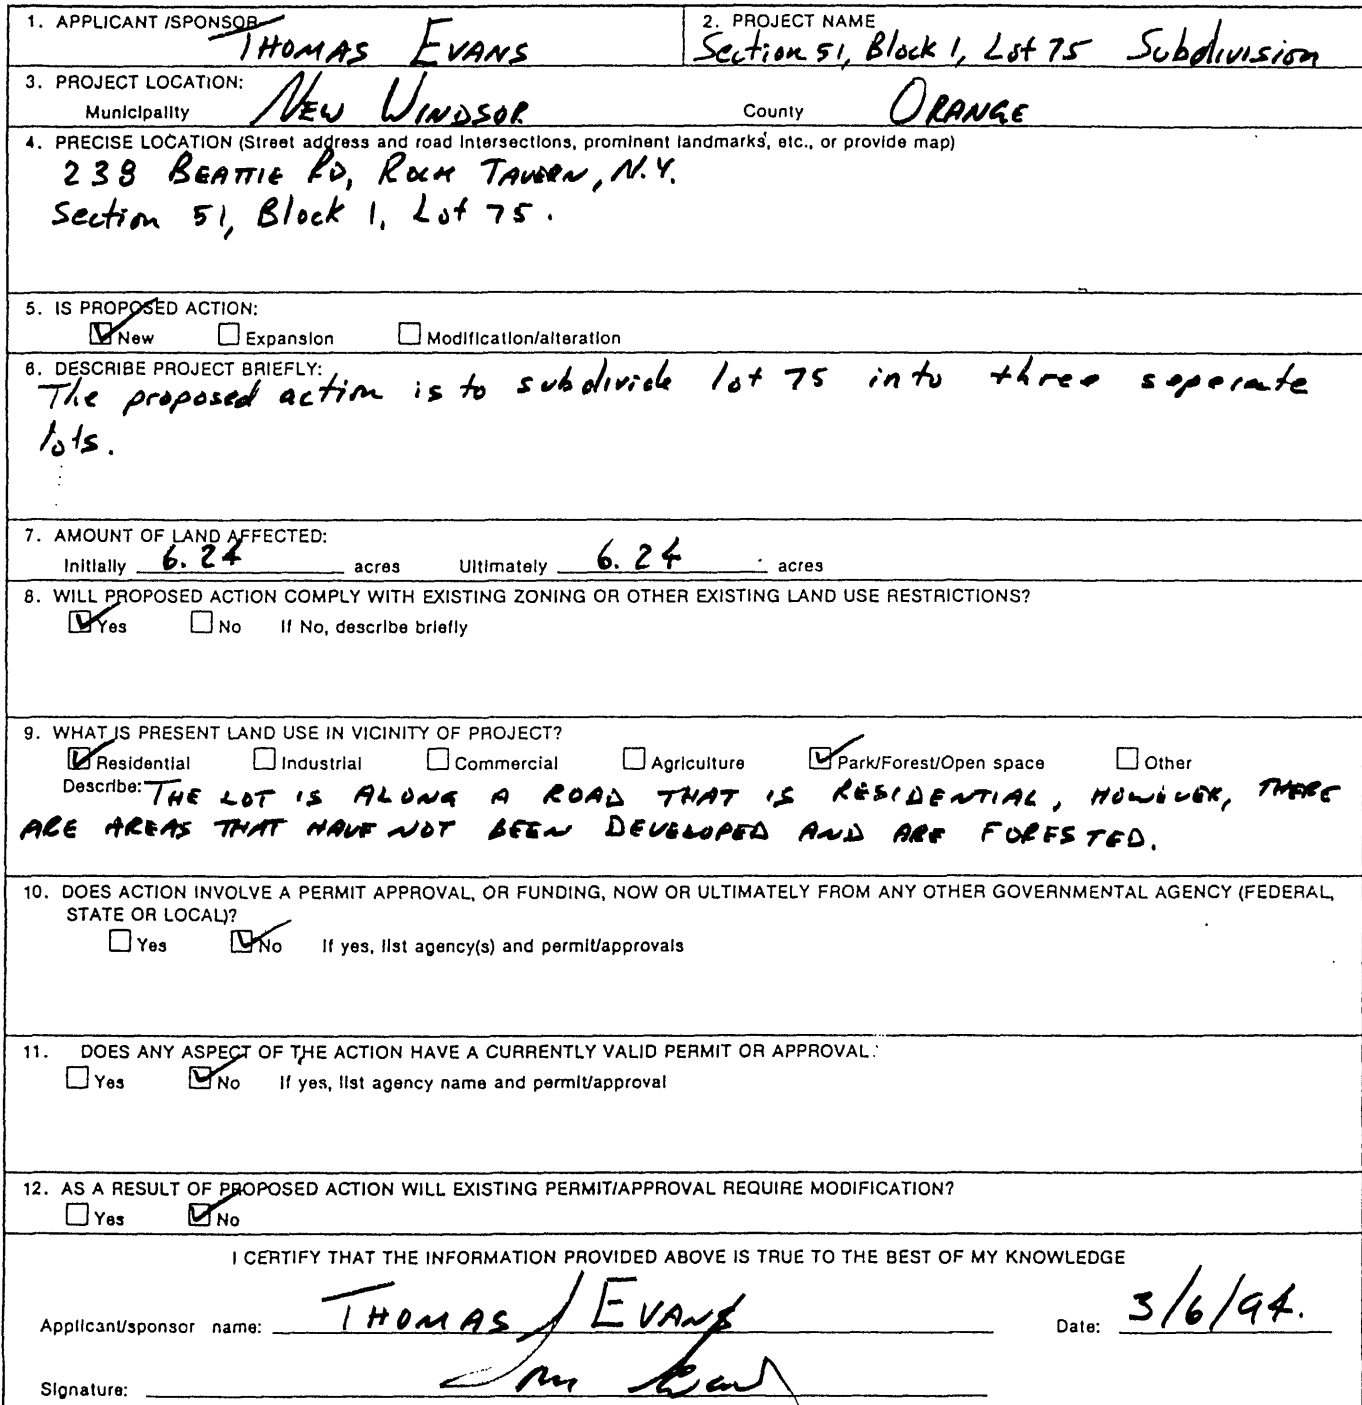 1. APPLICANT /SPONSOR
THOMAS EVANS
2. PROJECT NAME
Section 51, Block 1, Lot 75 Subdivision
3. PROJECT LOCATION:
Municipality NEW WINDSOR County ORANGE
4. PRECISE LOCATION (Street address and road intersections, prominent landmarks, etc., or provide map)
238 BEATTIE RD, ROCK TAVERN, N.Y.
Section 51, Block 1, Lot 75.
5. IS PROPOSED ACTION:
New Expansion Modification/alteration
6. DESCRIBE PROJECT BRIEFLY:
The proposed action is to subdivide lot 75 into three seperate
lots.
7. AMOUNT OF LAND AFFECTED:
Initially 6.24 acres Ultimately 6.24 acres
8. WILL PROPOSED ACTION COMPLY WITH EXISTING ZONING OR OTHER EXISTING LAND USE RESTRICTIONS?
Yes No If No, describe briefly
9. WHAT IS PRESENT LAND USE IN VICINITY OF PROJECT?
Residential Industrial Commercial Agriculture Park/Forest/Open space Other
Describe: THE LOT IS ALONG A ROAD THAT IS RESIDENTIAL, HOWEVER, THERE
ARE AREAS THAT HAVE NOT BEEN DEVELOPED AND ARE FORESTED.
10. DOES ACTION INVOLVE A PERMIT APPROVAL, OR FUNDING, NOW OR ULTIMATELY FROM ANY OTHER GOVERNMENTAL AGENCY (FEDERAL,
STATE OR LOCAL)?
Yes No If yes, list agency(s) and permit/approvals
11. DOES ANY ASPECT OF THE ACTION HAVE A CURRENTLY VALID PERMIT OR APPROVAL.
Yes No If yes, list agency name and permit/approval
12. AS A RESULT OF PROPOSED ACTION WILL EXISTING PERMIT/APPROVAL REQUIRE MODIFICATION?
Yes No
I CERTIFY THAT THE INFORMATION PROVIDED ABOVE IS TRUE TO THE BEST OF MY KNOWLEDGE
Applicant/sponsor name: THOMAS J EVANS Date: 3/6/94.
Signature: